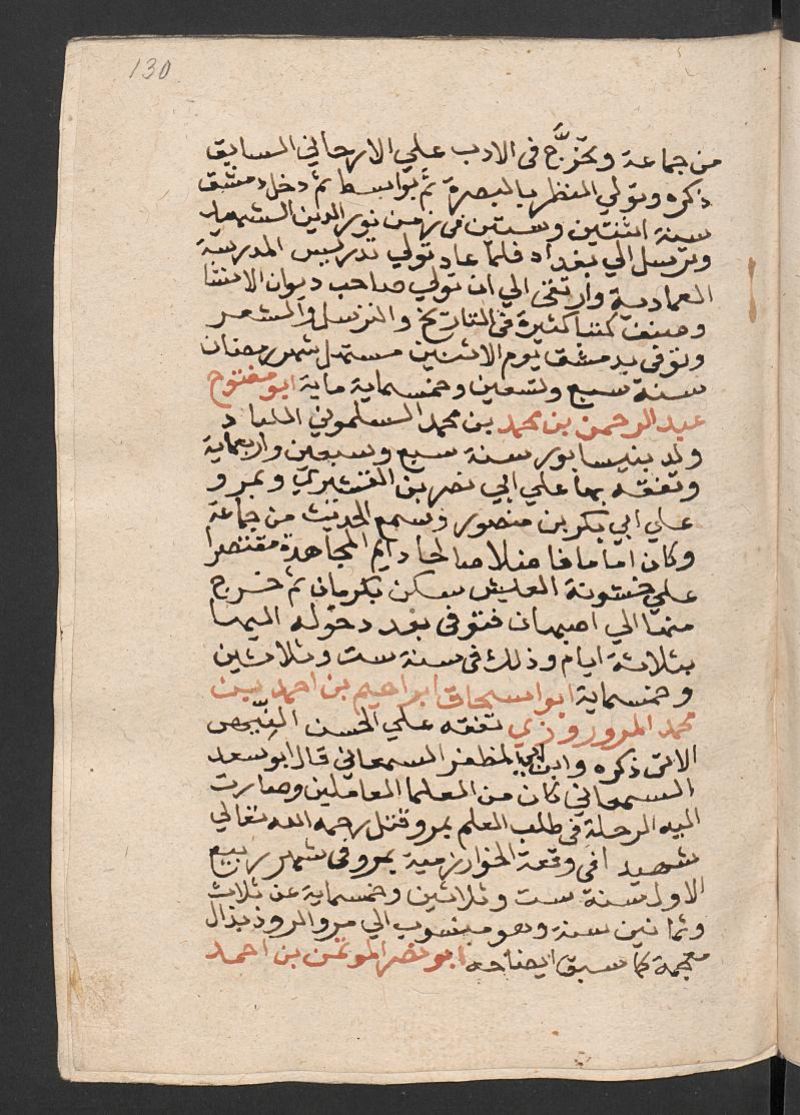 130
من جماعة وتخرَّج فى الادب علي الارجاني السابق
ذكره وتولي النظر بالبصرة ثم بواسط ثم دخل دمشق
سنة اثنتين وستين فى زمن نور الدين الشهيد
وترسل الي بغداد فلما عاد تولي تدريس المدرسة
العمادية وارتقى الي ان تولي صاحب ديوان الانشا
وصنف كتبا كثيرة فى التاريخ والترسل والشعر
وتوفى بدمشق يوم الاثنين مستهل شهر رمضان
سنة سبع وتسعين وخمسماية ماية ابو مفتوح
عبد الرحمن بن محمد بن محمد السلموني
ولد بنيسابور سنة سبع وسبعين واربعماية
وتفقه بها علي ابي نصر بن القشيري وبمرو
علي ابي بكر بن منصور وسمع الحديث من جماعة
وكان اماما فاضلا صالحا دايم المجاهدة مقتصرا
علي خشونة العيش سكن بكرمان ثم خرج
منها الي اصبهان فتوفى بعد دخوله اليها
بثلاثة ايام وذلك فى سنة ست وثلاثين
وخمسماية ابو اسحاق ابراهيم بن احمد بن
محمد المروروذي تفقه علي الحسن النيهي
الاتى ذكره وابن ابي المظفر السمعاني قال ابو سعد
السمعاني كان من العلما العاملين وصارت
اليه الرحلة فى طلب العلم بمرو قتل رحمه الله تعالي
شهيدا فى وقعة الخوارزمية بمرو فى شهر ربيع
الاول سنة ست وثلاثين وخمسماية عن ثلاث
وثمانين سنة وهو منسوب الي مرو الروذ بذال
معجمة كما سبق ايضاحه ابو نصر الموتمن بن احمد